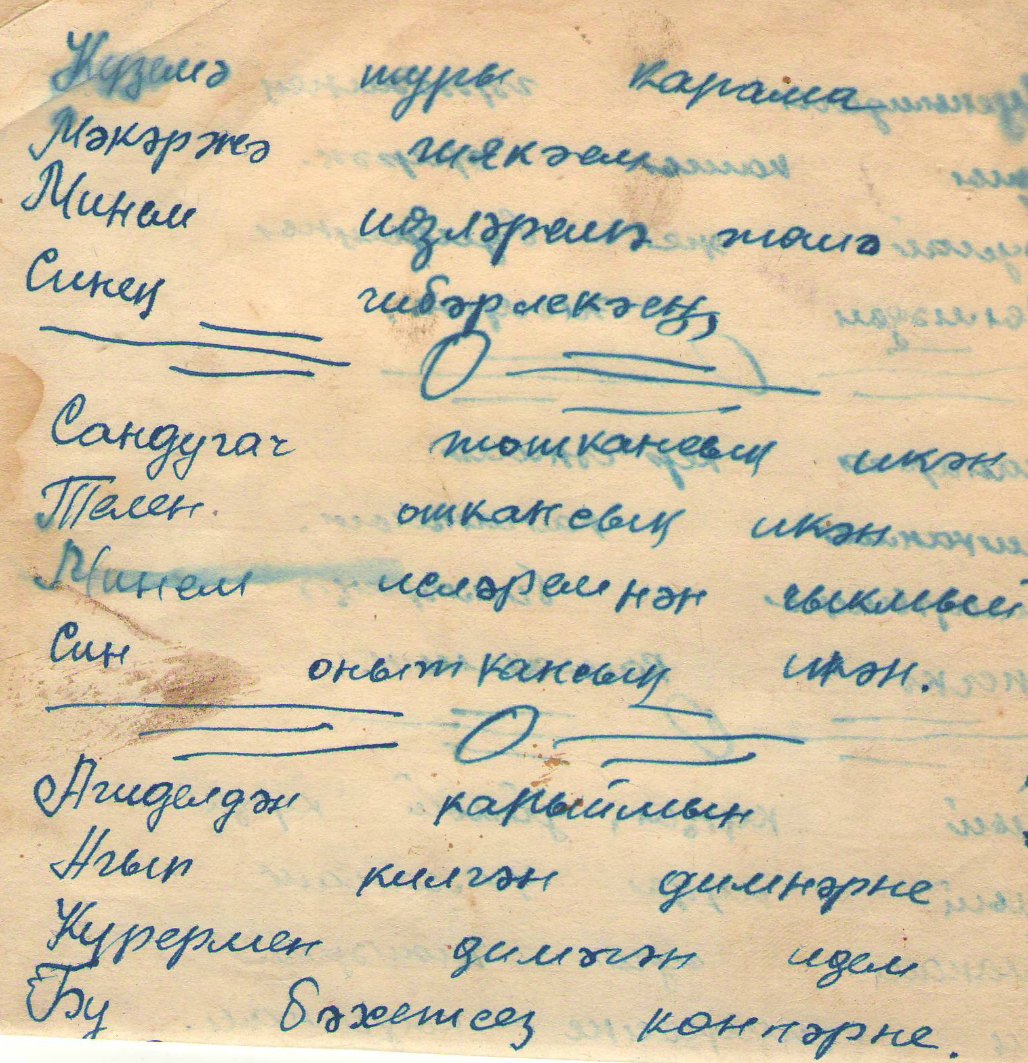 Күземә туры карама
Мәкәржә шякәем
Минем йөзләремә жәмә
Синең чибәрлекәең,
Сандугач тошкансың икән
Телен ошкансың икән
Минем исләремнән чыкмый
Син оныткансың икән.
Агиделдән карыймын
Агып килгән димнәрне
Күрермен димәгән идем
Бу бәхетсез көннәрне.